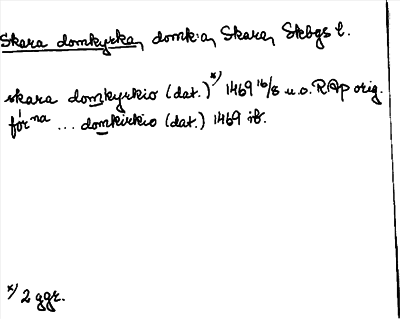 Skara domkyrka, domk:a, Skara, Skbgs l.
skara domkyrkio (dat.) x) 1469 16/8 u.o. RAp orig.
förna ... domkirkio (dat.) 1469 ib.
x) 2 ggr.